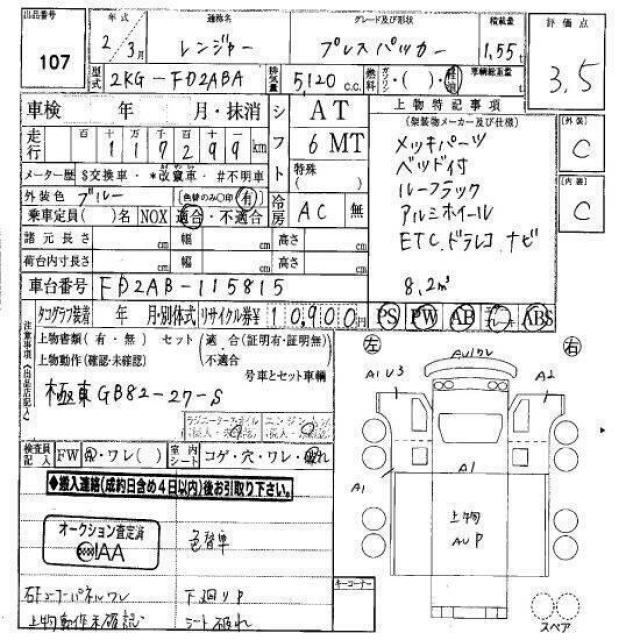 出品番号
107
年式
2/3月
通称名
レンジャー
グレード及び形状
プレスパッカー
積載量
1,55t
評価点
3,5
型式
2KG-FD2ABA
排気量
5,120 c.c.
燃料
ガソリン・( )・軽油
車輌総重量 t
車検 年 月・抹消
シフト
AT
6 MT
特殊
( )
走行
百 十 万 千 百 十 一
117299km
メーター歴 $交換車・*改竄車・#不明車
外装色 ブルー
[色替のみ○印 有]
乗車定員( )名
NOX
適合・不適合
冷房
AC 無
諸元長さ cm 幅 cm 高さ cm
荷台内寸長さ cm 幅 cm 高さ cm
車台番号
FD2AB-115815
上物特記事項
(架装物メーカー及び仕様)
メッキパーツ
ベッド付
ルーフラック
アルミホイール
ETC.ドラレコ ナビ
8,2m³
[外装]
C
[内装]
C
タコグラフ装着 年 月・別体式
リサイクル券¥
10,900円
PS PW AB ABS
注意事項(出品店記入)
上物書類(有・無) セット(適 合(証明有・証明無)
上物動作(確認・未確認) (不適合
号車とセット車輌
極東GB82-27-S
検査員記入
FW
・ワレ( )
室内シート
コゲ・穴・ワレ・破れ
◆搬入連絡(成約日含め4日以内)後お引取り下さい。
オークション査定済
IAA
色替車
右コーナーパネルワレ
下廻りP
上物動作未確認
シート破れ
キーコーナー
左
右
AUワレ
A1 U3
A2
A1
A1
上物
AUP
スペア